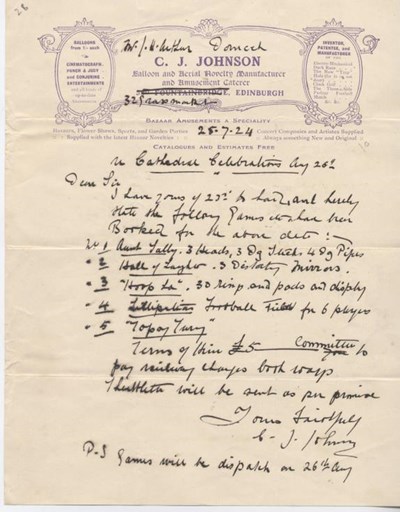 28
Mr J. M. Arthur Dornoch
BALLOONS
from 1/- each
CINEMATOGRAPH,
PUNCH & JUDY
and CONJURING
ENTERTAINMENTS
INVENTOR,
PATENTEE, and
MANUFACTURER
OF THE
C. J. JOHNSON
Balloon and Aerial Novelty Manufacturer
and Amusement Caterer
FOUNTAINBRIDGE, EDINBURGH
32 Grassmarket
BAZAAR AMUSEMENTS A SPECIALITY
Bazaars, Flower Shows, Sports, and Garden Parties
Supplied with the latest Recent Novelties
28-7-24
Concert Companies and Artistes Supplied
Always something New and Original
CATALOGUES AND ESTIMATES FREE
re Cathedral Celebrations Aug 28th
Dear Sir
I have yours of 23rd to hand, and hereby
State the following Games to have been
Booked for the above date :-
No 1 Aunt Sally. 3 Heads, 3 Dg Sticks 4 Dg Pipes
" 2 Hall of Laughter. 3 Distorting Mirrors.
" 3 "Hoop La". 30 rings and pads and display
" 4 Lilliputian Football Field for 6 players
" 5 "Topsy Turvy"
Terms of Hire £5 Committee to
pay railway charges both ways
will be sent as per promise
Yours Faithfully
C. J. Johnson
P.S Games will be dispatch on 26th Aug